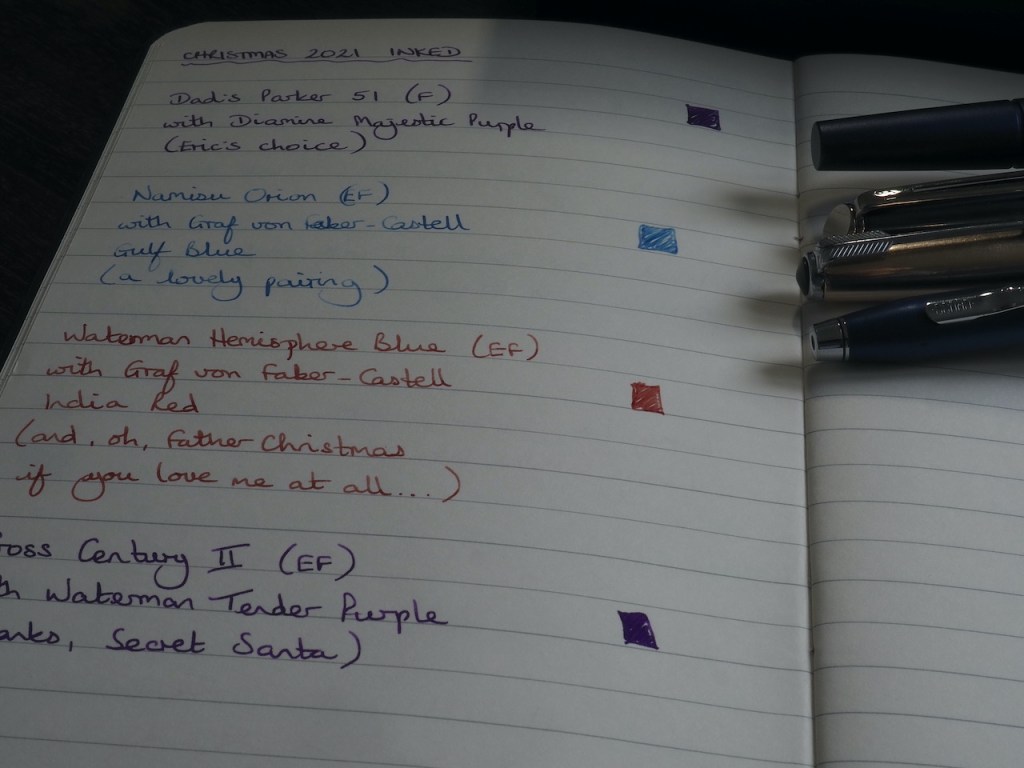 CHRISTMAS 2021 INKED
Dad's Parker 51 (F)
with Diamine Majestic Purple
(Eric's choice)
Namisu Orion (EF)
with Graf von Faber-Castell
Gulf Blue
(a lovely pairing)
Waterman Hemisphere Blue (EF)
with Graf von Faber-Castell
India Red
(and, oh, Father Christmas
if you love me at all...)
ross Century II (EF)
th Waterman Tender Purple
anks, Secret Santa)